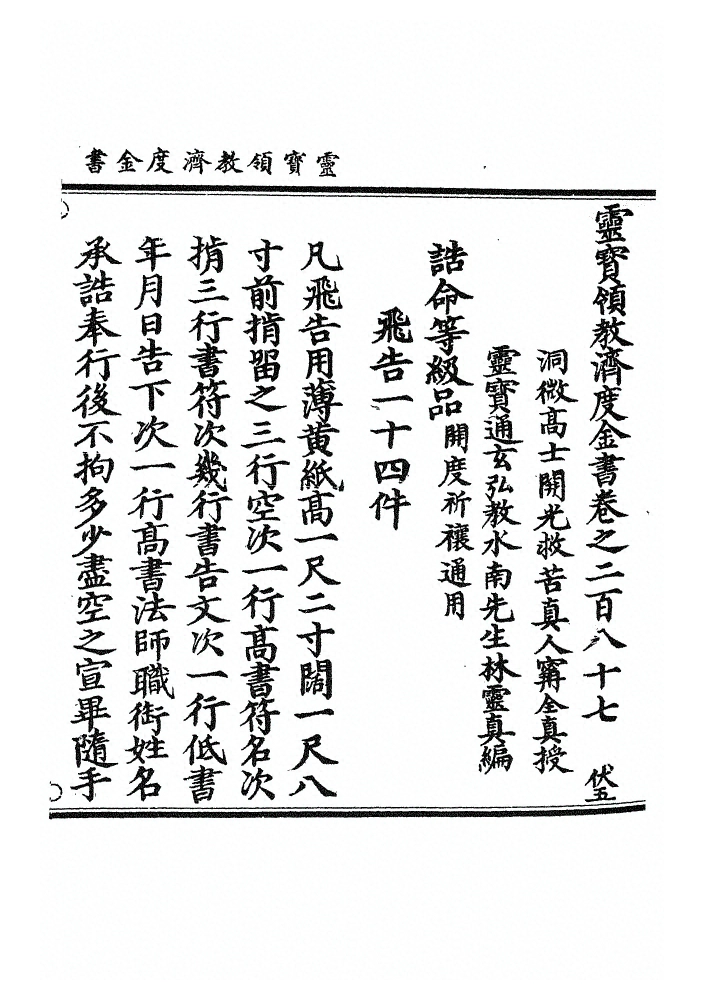 靈寶領教濟度金書
靈寶領教濟度金書卷之二百八十七 伏五
洞微高士開光救苦真人甯全真授
靈寶通玄弘教水南先生林靈真編
誥命等級品 開度祈禳通用
飛告一十四件
凡飛告用薄黃紙高一尺二寸闊一尺八
寸前掯留之三行空次一行高書符名次
掯三行書符次幾行書告文次一行低書
年月日告下次一行高書法師職銜姓名
承誥奉行後不拘多少盡空之宣畢隨手